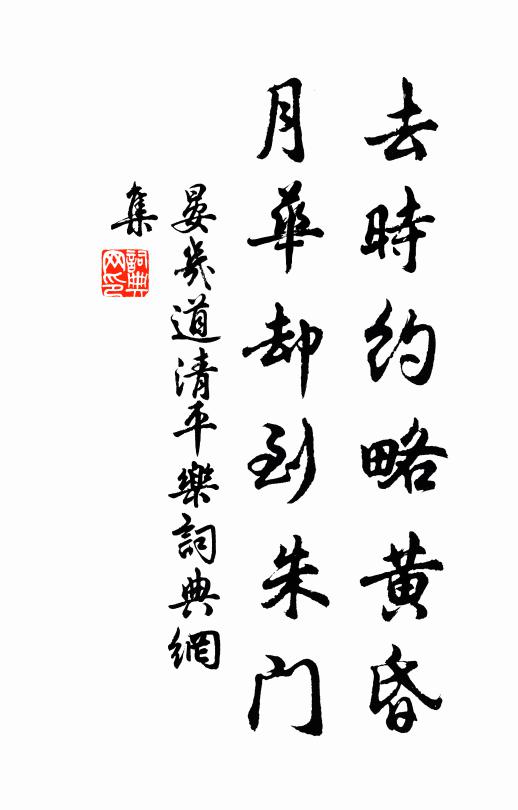 去時約略黄昏
月華却到朱門
晏幾道清平樂詞典網
集
詞典
网印